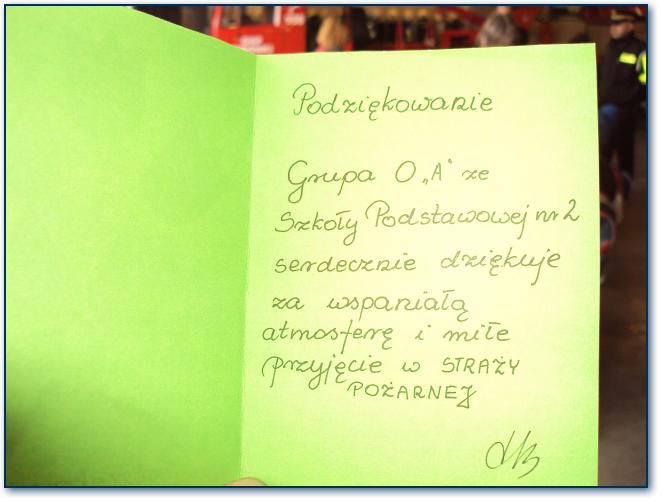 Podziękowanie
Grupa O „A” ze
Szkoły Podstawowej nr 2
serdecznie dziękuje
za wspaniałą
atmosferę i miłe
przyjęcie w STRAŻY
POŻARNEJ